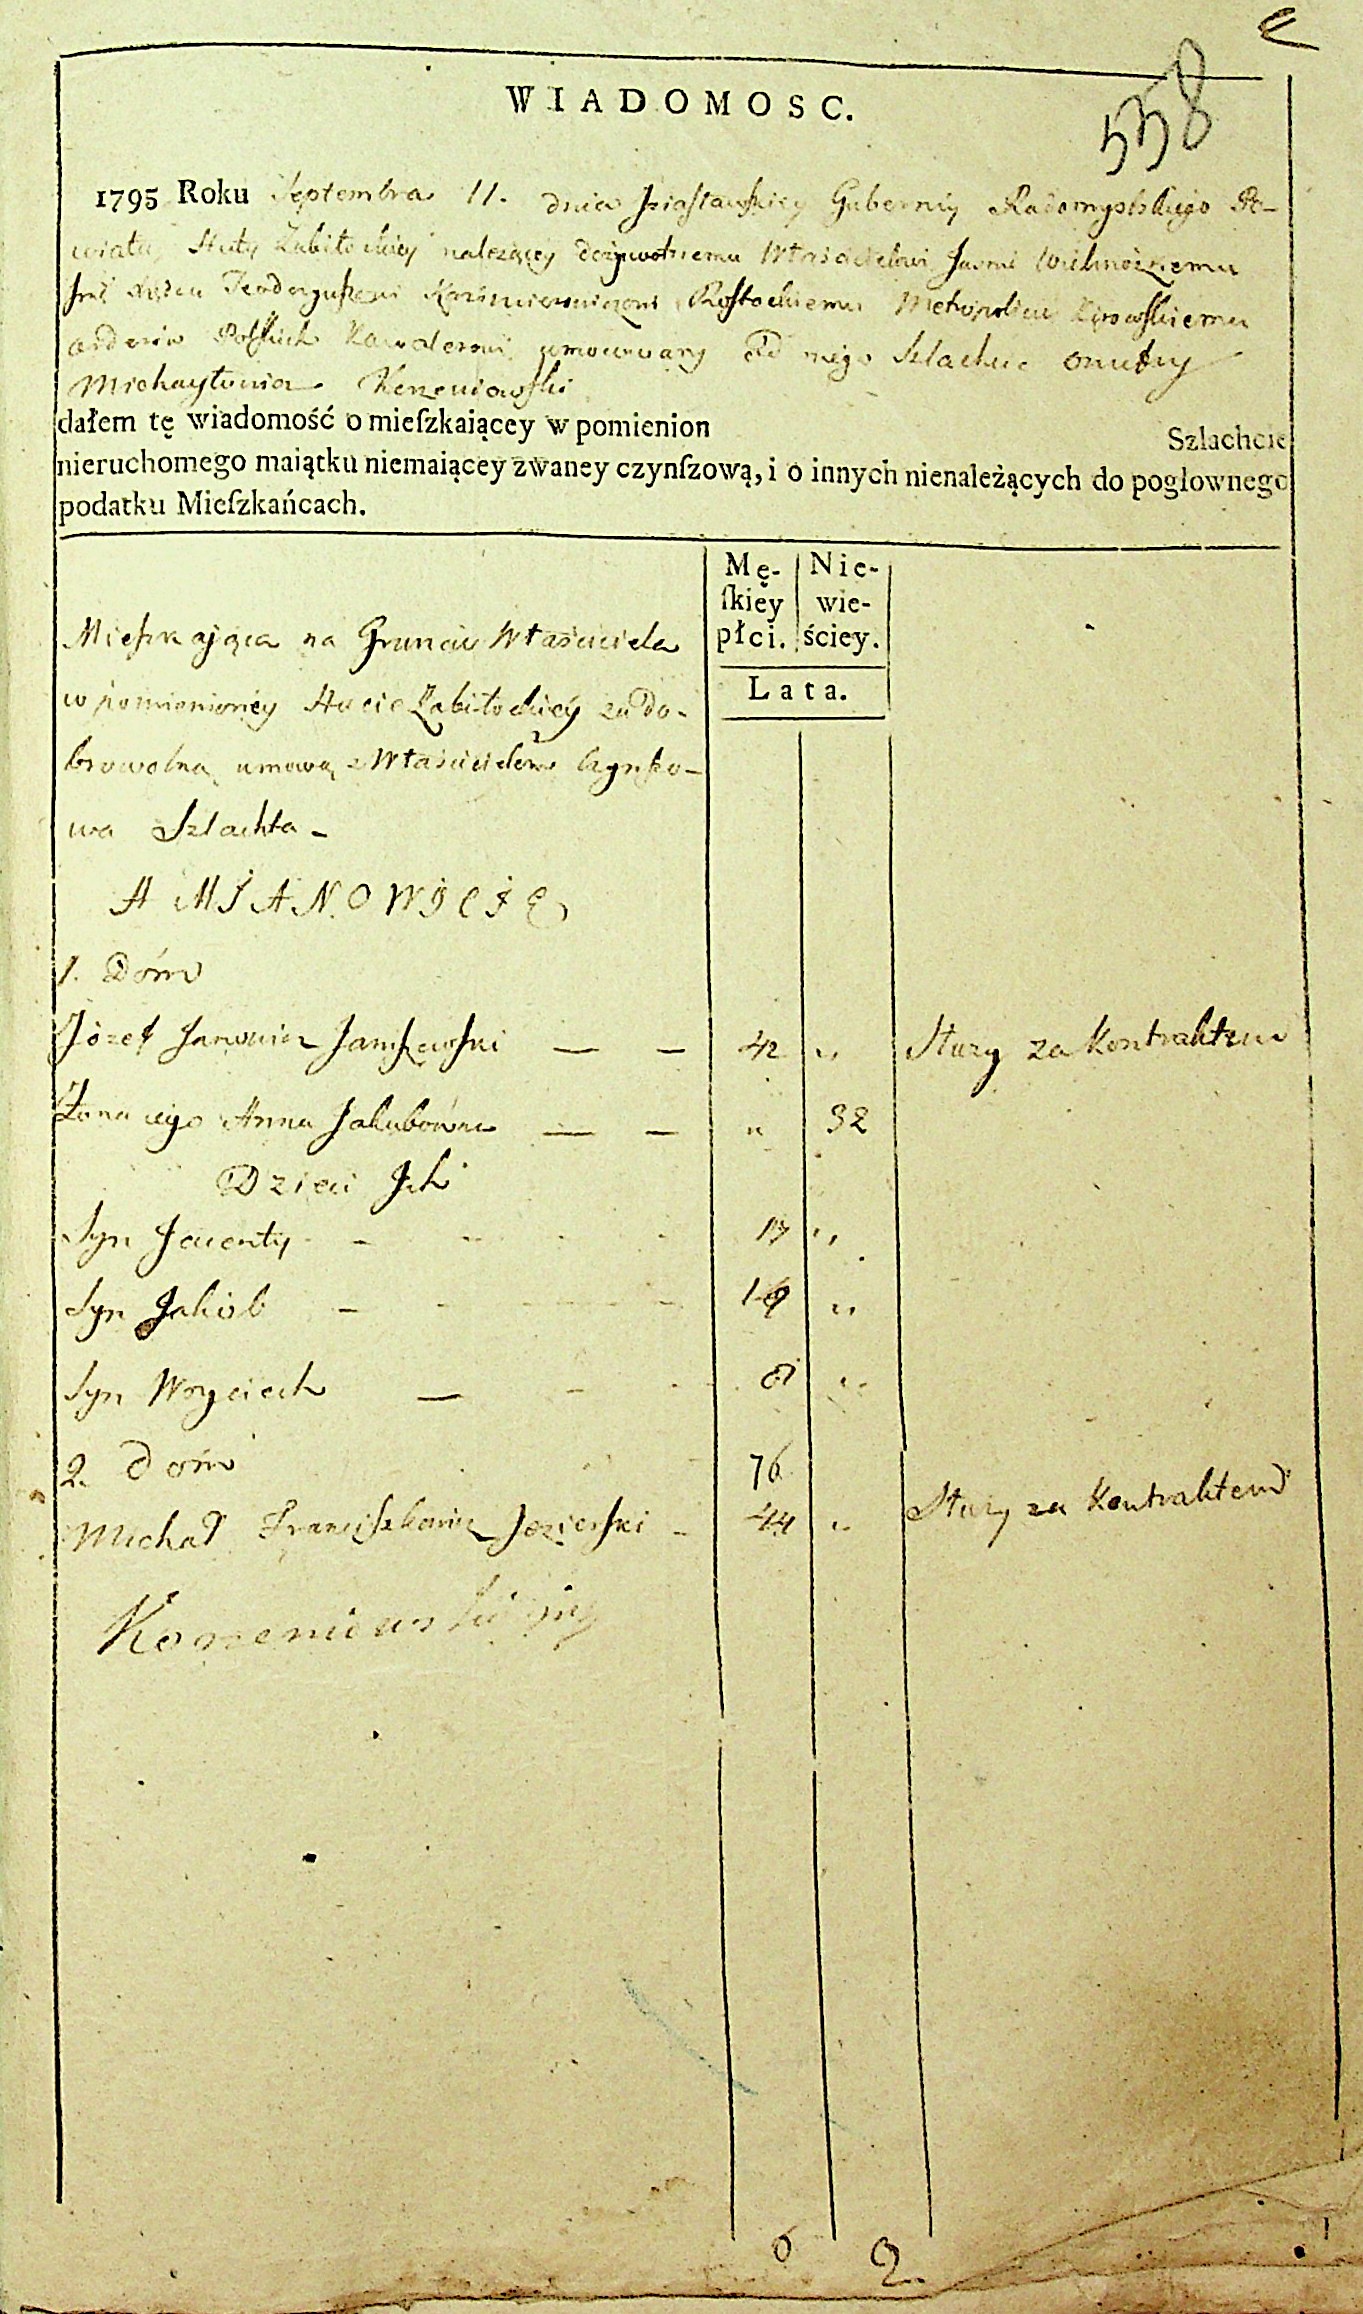 WIADOMOSC.
558
1795 Roku Septembra 11. dnia Iziasławskiey Gubernij Radomyslskiego Po-
wiatu, Huty Zabiłockiey należącey dożywotniemu Właścicielowi Jasnie Wielmożnemu
Teodozyuszowi Rostockiemu Metropolicie Kijowskiemu
orderów Polskich Kawalerowi, umocowany od niego Szlachcic
Michayłowicz Korzeniowski
dałem tę wiadomość o mieſzkaiącey w pomienion
Szlachcie
nieruchomego maiątku niemaiącey zwaney czynſzową, i o innych nienależących do pogłownego
podatku Mieſzkańcach.
Mę-
ſkiey
płci.
Nie-
wie-
ściey.
Lata.
Mieszkająca na Gruncie Właściciela
w pomienioney Hucie Zabiłockiey za do-
browolną umową z Właścicielem Czynszo-
wa Szlachta -
A MIANOWICIE
1. Dóm
Józef Janowicz Janiszewski — — 42 „ Stary za Kontraktem
Żona iego Anna Jakubówna — — „ 32
Dzieci Ich
Syn Jacenty - - - - 17 „
Syn Jakób - - - 10 „
Syn Woyciech — - - 8 „
2. Dóm 76
Michał Franciszkowicz Jezierski - 44 „ Stary za Kontraktem
Korzeniowski
6 2.